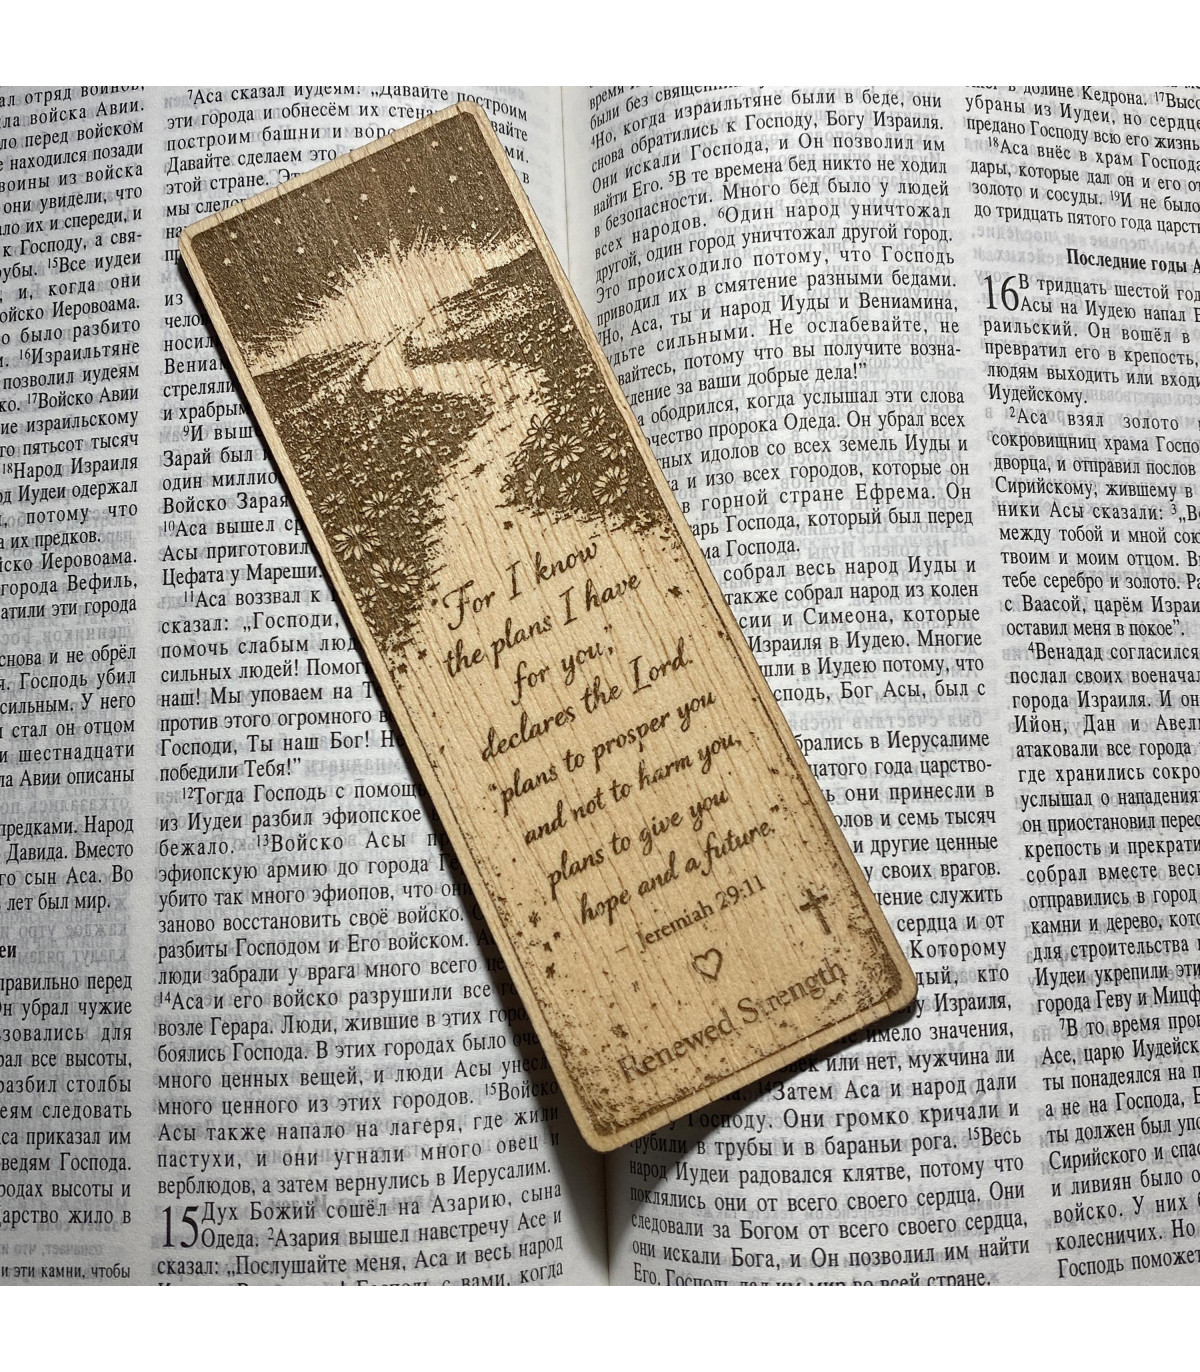 "For I know
the plans I have
for you,"
declares the Lord.
"plans to prosper you
and not to harm you,
plans to give you
hope and a future."
– Jeremiah 29:11
Renewed Strength
ал отряд воинов,
войска Авии.
перед войском
находился позади
воины из войска
они увидели, что
ло их и спереди, и
к Господу, а свя-
рубы. 15Все иудеи
и, когда они
войско Иеровоама.
было разбито
16Израильтяне
позволил иудеям
17Войско Авии
израильскому
пятьсот тысяч
18Народ Израиля
Иудеи одержал
потому что
их предков.
войско Иеровоама.
города Вефиль,
эти города
снова и не обрёл
Господь убил
сильным. У него
стал он отцом
и шестнадцати
Авии описаны
предками. Народ
Давида. Вместо
сын Аса. Во
лет был мир.
правильно перед
Он убрал чужие
все высоты,
разбил столбы
следовать
Аса приказал им
Господа.
высоты и
жило в
и эти камни, чтобы
7Аса сказал иудеям: „Давайте построим
эти города и обнесём их
построим башни и
Давайте сделаем это
этой стране.
мы
из
носил
стреляли
и храбрым
9И
Зарай был
один
Войско Зарая
10Аса вышел
Асы приготовил
Цефата у Мареши.
11Аса воззвал к
сказал: „Господи,
помочь слабым
сильных людей!
наш! Мы уповаем на
против этого огромного
Господи, Ты наш Бог! Не
победили Тебя!"
12Тогда Господь с
из Иудеи разбил эфиопское
бежало. 13Войско Асы
эфиопскую армию до города
убито так много эфиопов, что
заново восстановить своё войско.
разбиты Господом и Его войском.
люди забрали у врага много всего
14Аса и его войско разрушили все
возле Герара. Люди, жившие в этих
боялись Господа. В этих городах было
много ценных вещей, и люди Асы
много ценного из этих городов. 15Войско
Асы также напало на лагеря, где жили
пастухи, и они угнали много овец и
верблюдов, а затем вернулись в Иерусалим.
15Дух Божий сошёл на Азарию, сына
Одеда. 2Азария вышел навстречу Асе и
сказал: „Послушайте меня, Аса и весь народ
с вами, когда
время
были без
4Но, когда израильтяне были в беде, они
снова обратились к Господу, Богу Израиля.
Они искали Господа, и Он позволил им
найти Его. 5В те времена бед никто не ходил
в безопасности. Много бед было у людей
всех народов. 6Один народ уничтожал
другой, один город уничтожал другой город.
Это происходило потому, что Господь
приводил их в смятение разными бедами.
7Но, Аса, ты и народ Иуды и Вениамина,
будьте сильными. Не ослабевайте, не
потому что вы получите возна-
за ваши добрые дела!"
ободрился, когда услышал эти слова
пророка Одеда. Он убрал всех
идолов со всех земель Иуды и
и изо всех городов, которые он
в горной стране Ефрема. Он
Господа, который был перед
Господа.
собрал весь народ Иуды и
также собрал народ из колен
и Симеона, которые
Израиля в Иудею. Многие
в Иудею потому, что
Господь, Бог Асы, был с
в Иерусалиме
года царство-
они принесли в
и семь тысяч
и другие ценные
у своих врагов.
служить
сердца и от
Которому
кто
Израиля,
имело значения,
или нет, мужчина ли
14Затем Аса и народ дали
Господу. Они громко кричали и
трубили в трубы и в бараньи рога. 15Весь
народ Иудеи радовался клятве, потому что
поклялись они от всего своего сердца. Они
следовали за Богом от всего своего сердца,
они искали Бога, и Он позволил им найти
Его. Господь дал им мир во всей стране.
в долине Кедрона. 17
убраны из Иудеи, но
предано Господу всю его жизнь
18Аса внёс в храм
дары, которые дал он и его
золото и сосуды. 19И не было
до тридцать пятого года
Последние годы
16В тридцать шестой год
Асы на Иудею напал
Он вошёл в
превратил его в крепость,
людям выходить или
Иудейскому.
2Аса взял золото
сокровищниц храма
дворца, и отправил послов
Сирийскому, жившему в
ники Асы сказали: 3
между тобой и мной
твоим и моим отцом.
тебе серебро и золото.
с Ваасой, царём
оставил меня в покое".
4Венадад согласился
послал своих
города Израиля. И
Ийон, Дан и
атаковали все города
где хранились
услышал о нападении
он приостановил
крепость и
собрал вместе
отправились в город
камни и дерево,
для строительства
Иудеи укрепили
города Геву и
7В то время
Асе, царю
ты понадеялся на
а не на Господа,
ты должен был
Сирийского и
и ливиян было
войско. У них
колесничих. Но
Господь